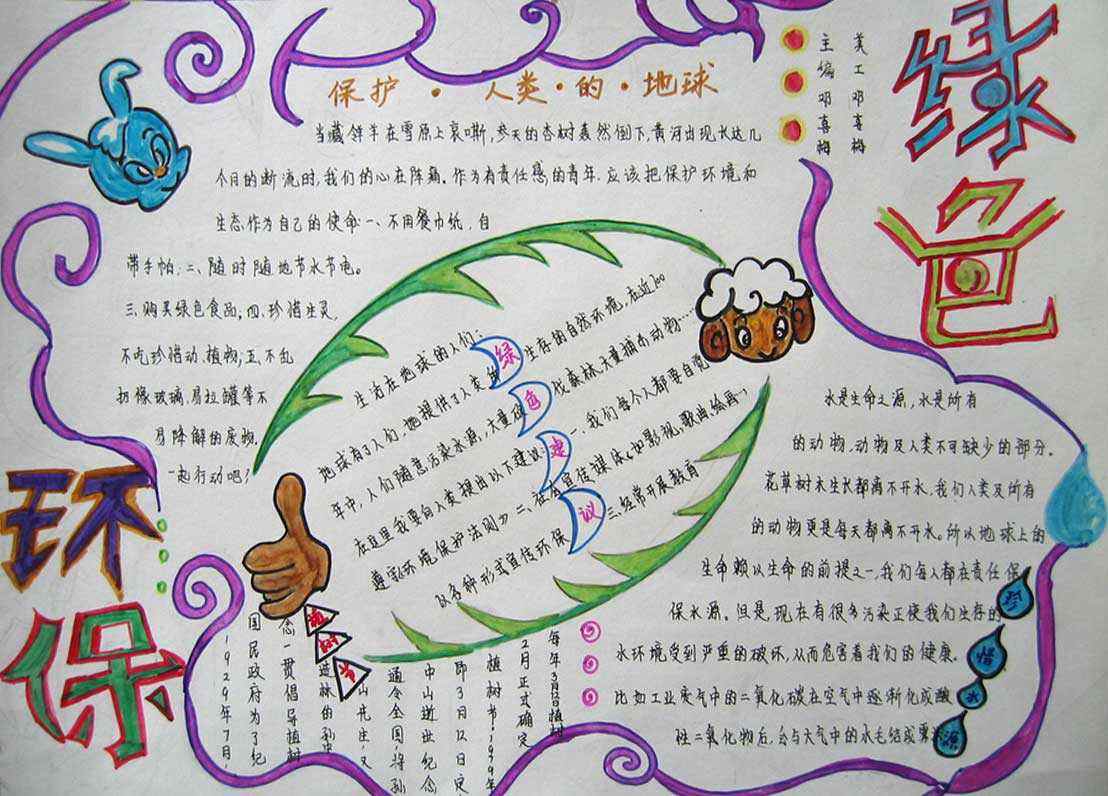 绿色
环保
主编 邓喜梅
美工 邓喜梅
保护·人类·的·地球
当藏羚羊在雪原上哀嘶,参天的杏树轰然倒下,黄河出现长达几
个月的断流时,我们的心在阵痛。作为有责任感的青年.应该把保护环境和
生态作为自己的使命:一、不用餐巾纸,自
带手帕;二、随时随地节水节电。
三、购买绿色食品。四、珍惜生灵,
不吃珍惜动、植物;五、不乱
扔像玻璃、易拉罐等不
易降解的废物.
一起行动吧!
绿色建议
生活在地球的人们:
地球有了人们、她提供了人类生存的自然环境,在近100
年中,人们随意污染水源,大量伐森林,大量捕杀动物……
在这里我要向人类提出以下建议:一、我们每个人都要自觉
遵守《环境保护法则》二、在各宣传媒体,如影视、歌曲绘画、
以各种形式宣传环保三.经常开展教育
植树节
每年3月12日植树
植树节,1979年
2月正式确定
即3月12日定
中山逝世纪念
通令全国,将孙
山先生,又
造林的孙中
念一贯倡导植树
国民政府为了纪
1929年7月,
水是生命之源,水是所有
的动物,动物及人类不可缺少的部分。
花草树木生长都离不开水,我们人类及所有
的动物更是每天都离不开水。所以地球上的
生命赖以生命的前提之一,我们每人都在责任保
保水源。但是,现在有很多污染正使我们生存的
水环境受到严重的破坏,从而危害着我们的健康。
比如工业废气中的二氧化碳在空气中逐渐化成酸
性二氧化物后,会与大气中的水毛结成雾
珍惜水源